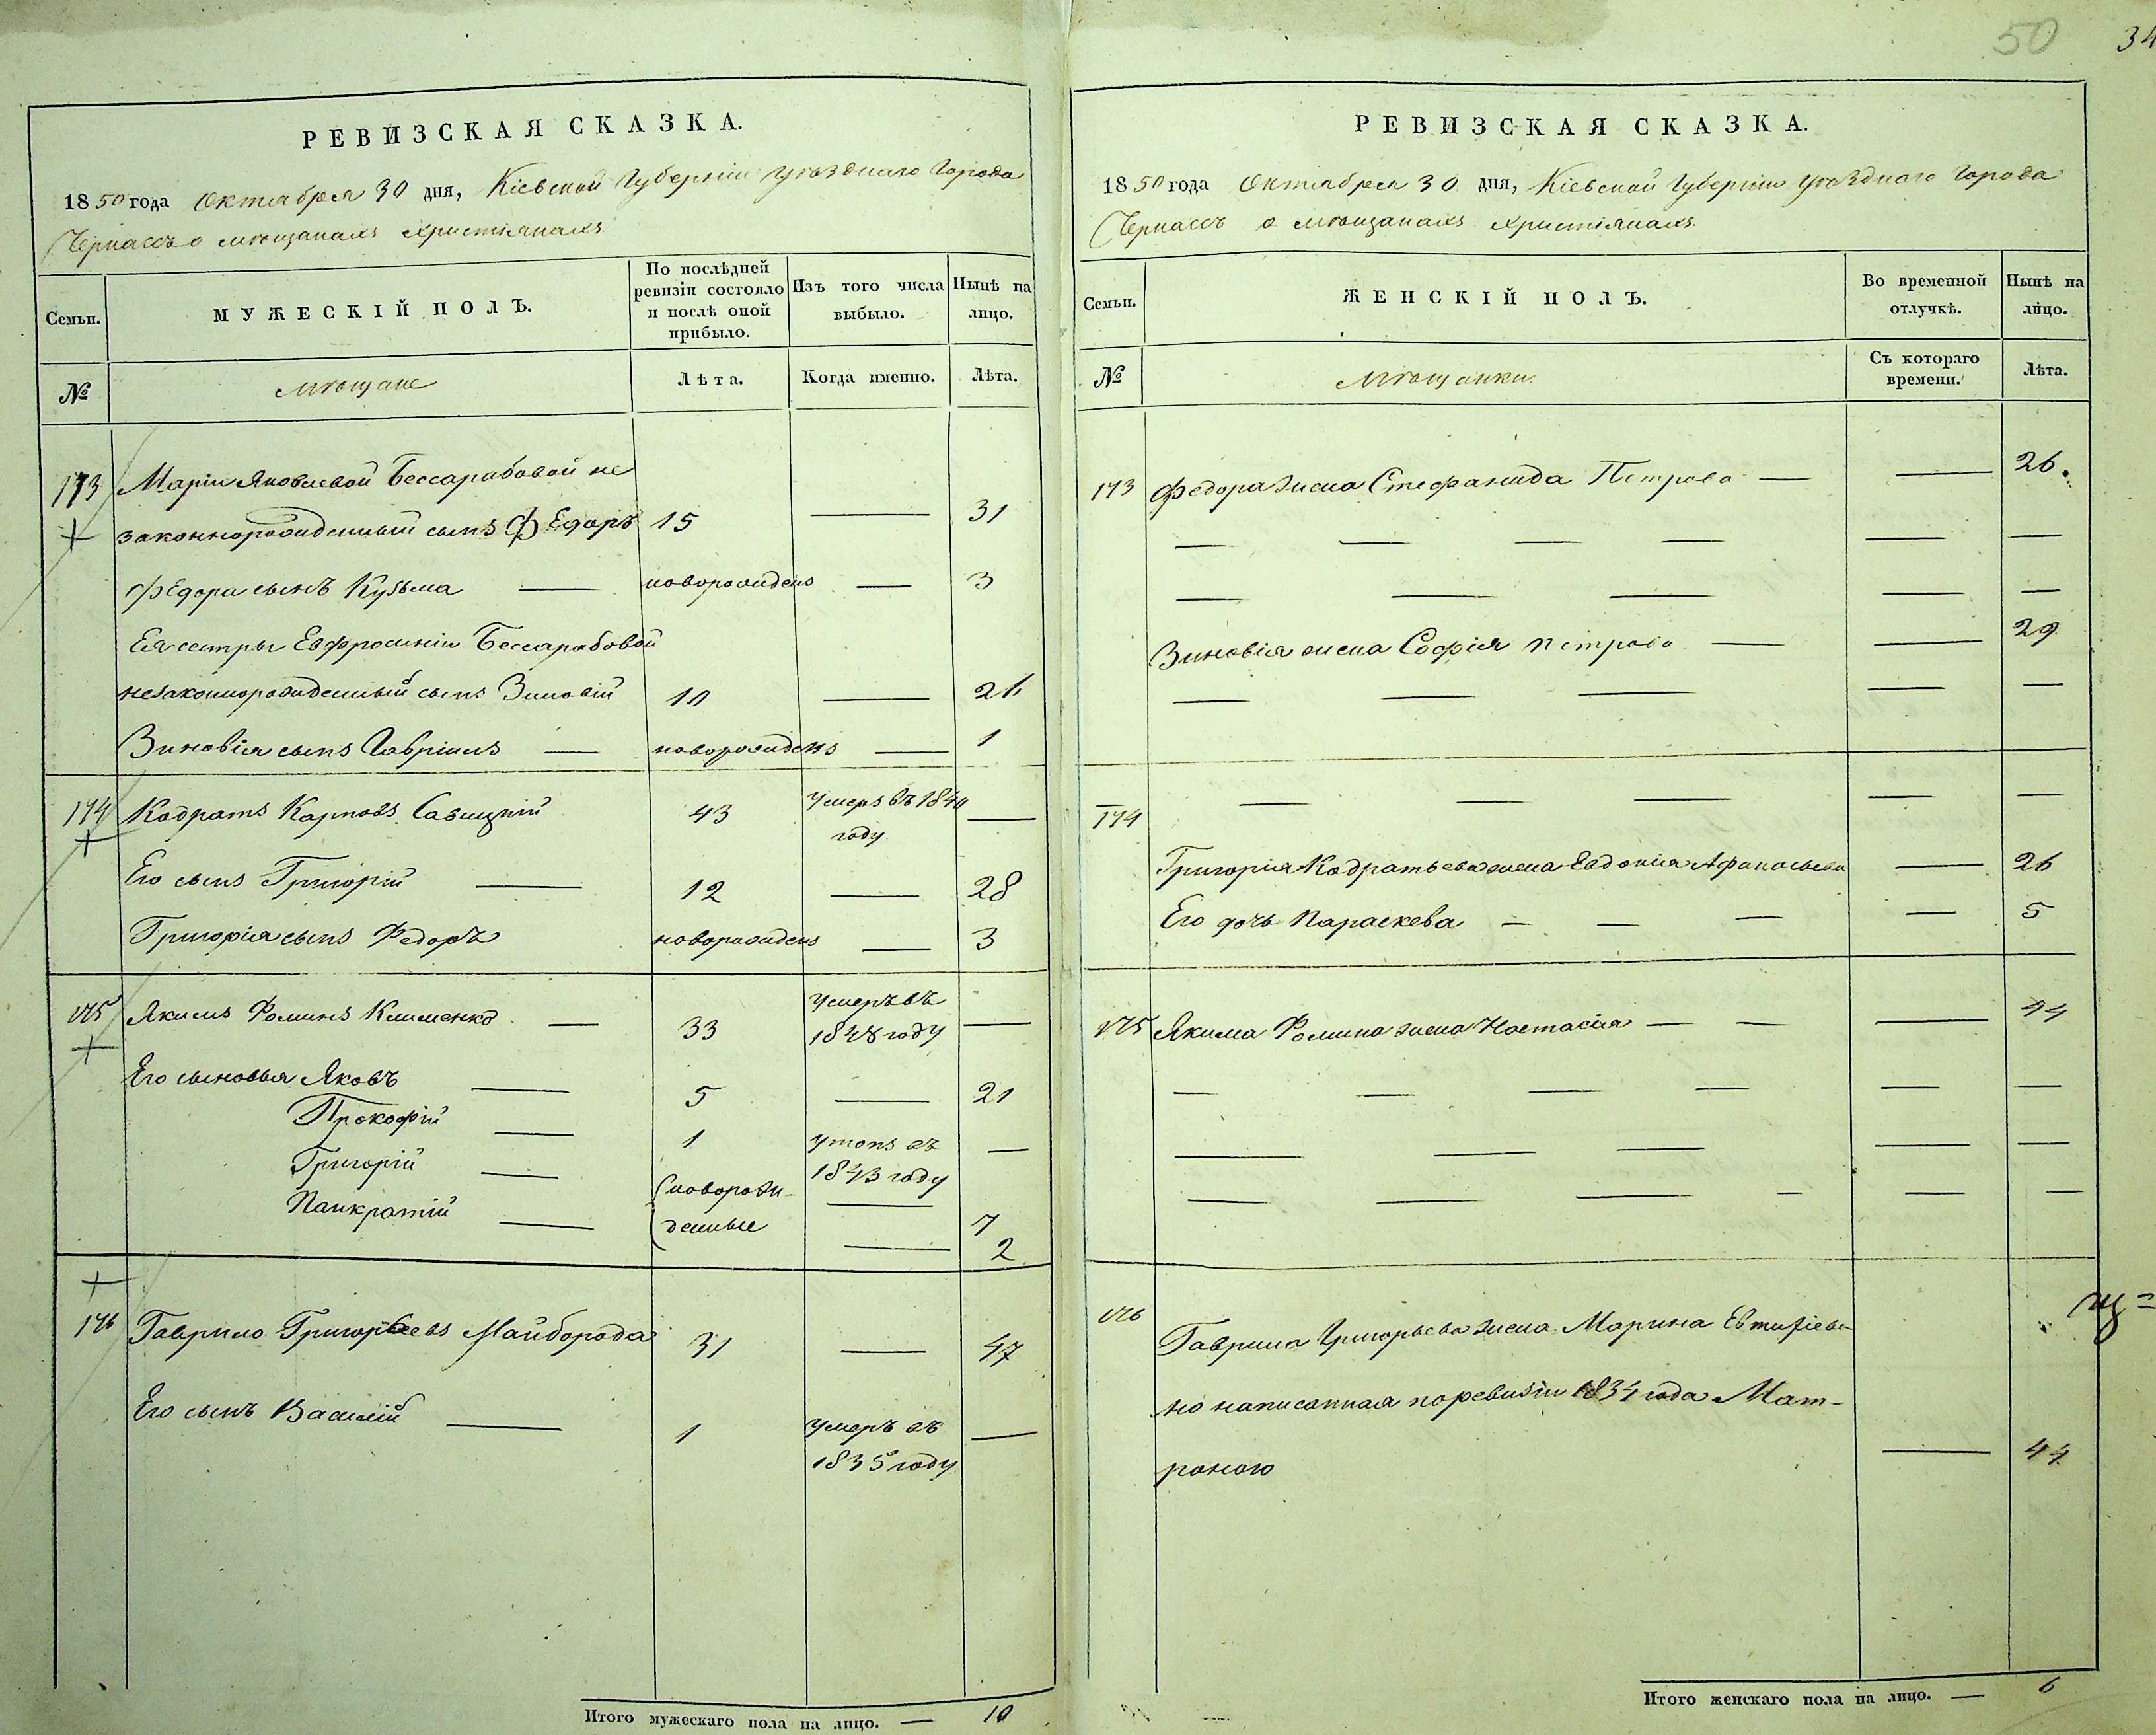 50 34
РЕВИЗСКАЯ СКАЗКА.
1850 года Октября 30 дня, Кіевской Губерніи уѣзднаго Города
Черкассъ о мѣщанахъ христіянахъ
Семьи.
МУЖЕСКІЙ ПОЛЪ.
По послѣдней ревизіи состояло и послѣ оной прибыло.
Изъ того числа выбыло.
Нынѣ на лицо.
№
мѣщане
Лѣта.
Когда именно.
Лѣта.
173 Маріи Яковлевой Бессарабовой не
законнорожденный сынъ Федоръ 15 — 31
Федора сынъ Кузьма — новорожденъ — 3
Ея сестры Евфросиніи Бессарабовой
незаконнорожденный сынъ Зиновій 10 — 26
Зиновія сынъ Гавріилъ — новорожденъ — 1
174 Кодратъ Карповъ Савицкій 43 умеръ въ 1840 году —
Его сынъ Григорій — 12 — 28
Григорія сынъ Федоръ новорожденъ — 3
175 Якимъ Фоминъ Клименко — 33 умеръ въ 1848 году —
Его сыновья Яковъ — 5 — 21
Прокофій — 1 утопъ въ 1843 году —
Григорій — новорож-
Панкратій — денные — 7
— 2
176 Гаврило Григорьевъ Майборода 31 — 47
Его сынъ Василій — 1 умеръ въ 1835 году —
Итого мужескаго пола на лицо. — 10
РЕВИЗСКАЯ СКАЗКА.
1850 года Октября 30 дня, Кіевской Губерніи уѣзднаго Города
Черкассъ о мѣщанахъ христіянахъ.
Семьи.
ЖЕНСКІЙ ПОЛЪ.
Во временной отлучкѣ.
Нынѣ на лицо.
№
Мѣщанки.
Съ котораго времени.
Лѣта.
173 Федора жена Стефанида Петрова — — 26.
Зиновія жена Софія Петрова — — 29
174
Григорія Кодратьева жена Евдокія Афанасьева — 26
Его дочь Параскева — — — — 5
175 Якима Фомина жена Настасія — — — 44
176 Гаврила Григорьева жена Марина Евтихіева
но написанная по ревизіи 1834 года Мат-
роною — 44
Итого женскаго пола на лицо. — 6